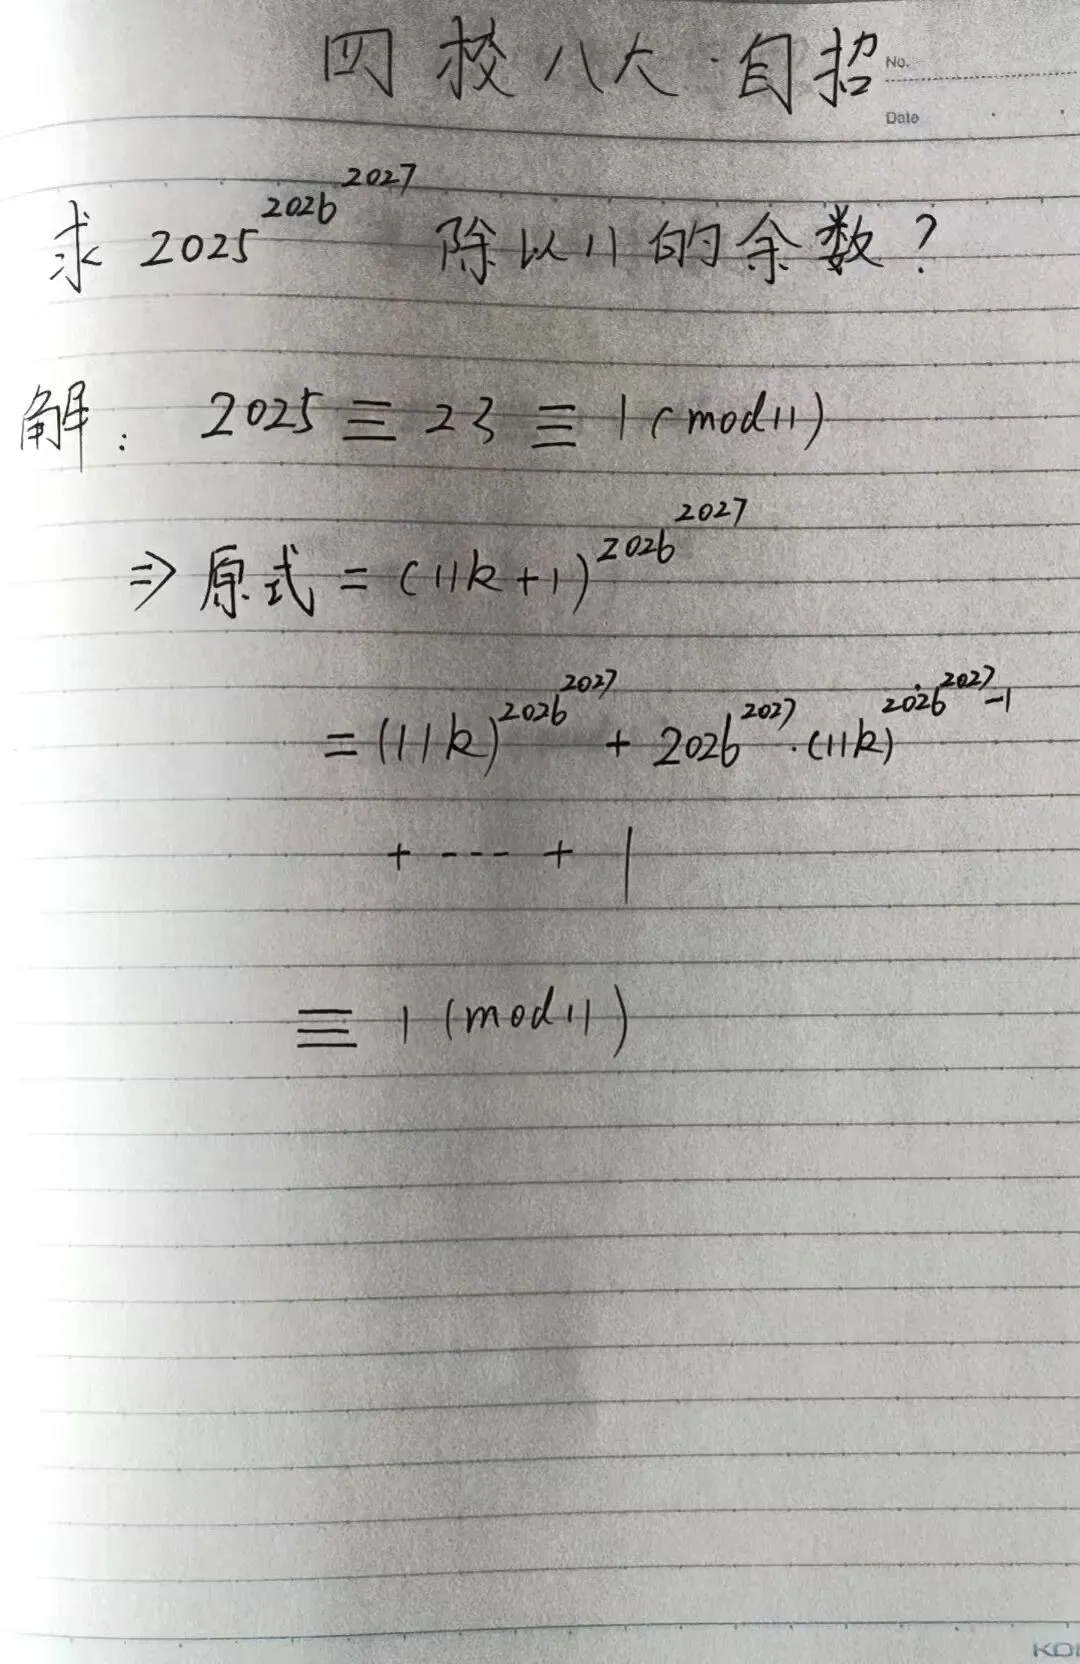 四校八大·自招
No.
Date
求 2025^2026^2027 除以11的余数?
解: 2025 ≡ 23 ≡ 1 (mod11)
⇒ 原式 = (11k+1)^2026^2027
= (11k)^2026^2027 + 2026^2027·(11k)^2026^2027-1
+ ---- + 1
≡ 1 (mod11)